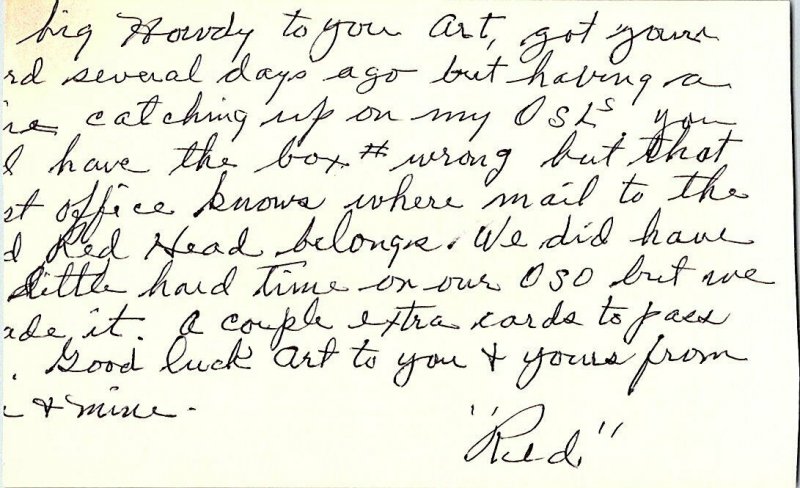 big Howdy to you Art, got your
rd several days ago but having a
ne catching up on my QSLs, you
d have the box # wrong but that
st office knows where mail to the
d Red Head belongs. We did have
little hard time on our QSO but we
ade it. A couple extra cards to pass
. Good luck Art to you & yours from
e & mine.
"Red"